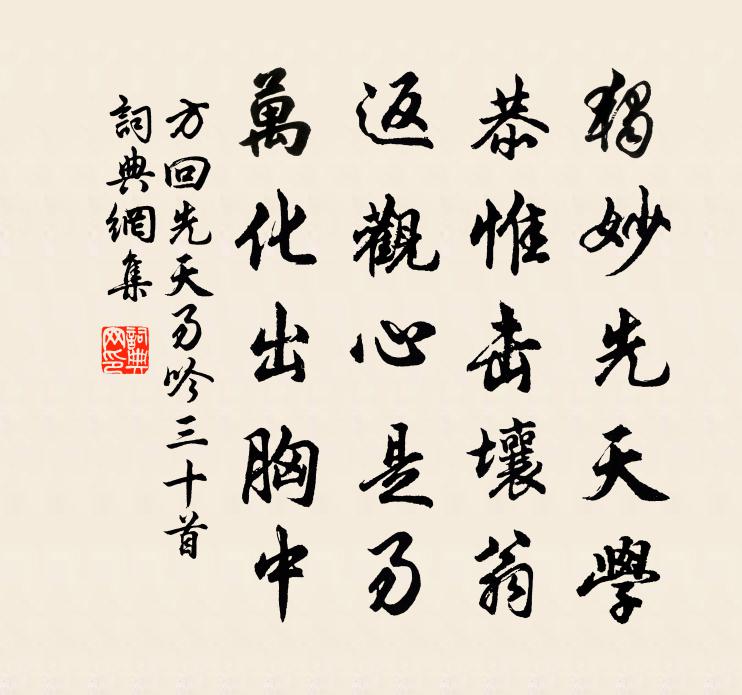 獨妙先天學
恭惟击壤翁
返觀心是易
萬化出胸中
方回先天易吟三十首
詞典網集
詞典網印